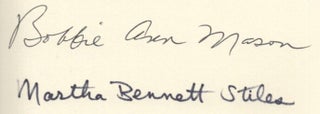 Bobbie Ann Mason
Martha Bennett Stiles